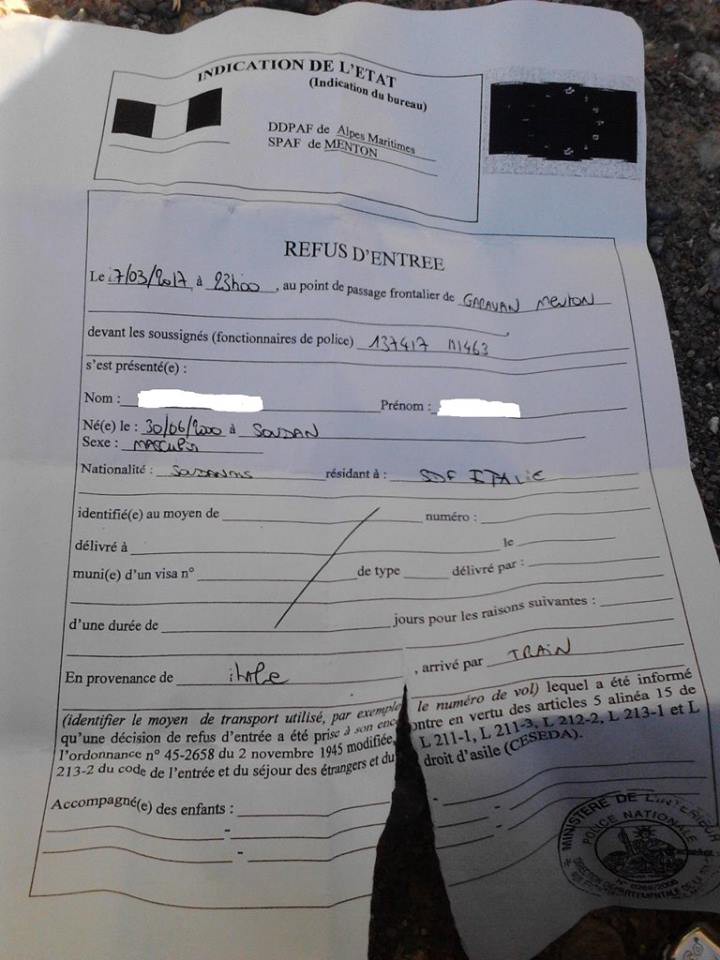 INDICATION DE L'ETAT
(Indication du bureau)
DDPAF de Alpes Maritimes
SPAF de MENTON
REFUS D'ENTREE
Le 17/03/2017 à 23h00, au point de passage frontalier de GARAVAN MENTON
devant les soussignés (fonctionnaires de police) 137417 M463
s'est présenté(e) :
Nom : Prénom :
Né(e) le : 30/06/2000 à SOUDAN
Sexe : MASCULIN
Nationalité : SOUDANAIS résidant à : SDF ITALIE
identifié(e) au moyen de numéro :
délivré à le
muni(e) d'un visa n° de type délivré par :
d'une durée de jours pour les raisons suivantes :
En provenance de italie , arrivé par TRAIN
(identifier le moyen de transport utilisé, par exemple le numéro de vol) lequel a été informé
qu'une décision de refus d'entrée a été prise à son encontre en vertu des articles 5 alinéa 15 de
l'ordonnance n° 45-2658 du 2 novembre 1945 modifiée, L 211-1, L 211-3, L 212-2, L 213-1 et L
213-2 du code de l'entrée et du séjour des étrangers et du droit d'asile (CESEDA).
Accompagné(e) des enfants :
MINISTERE DE L'INTERIEUR
POLICE NATIONALE